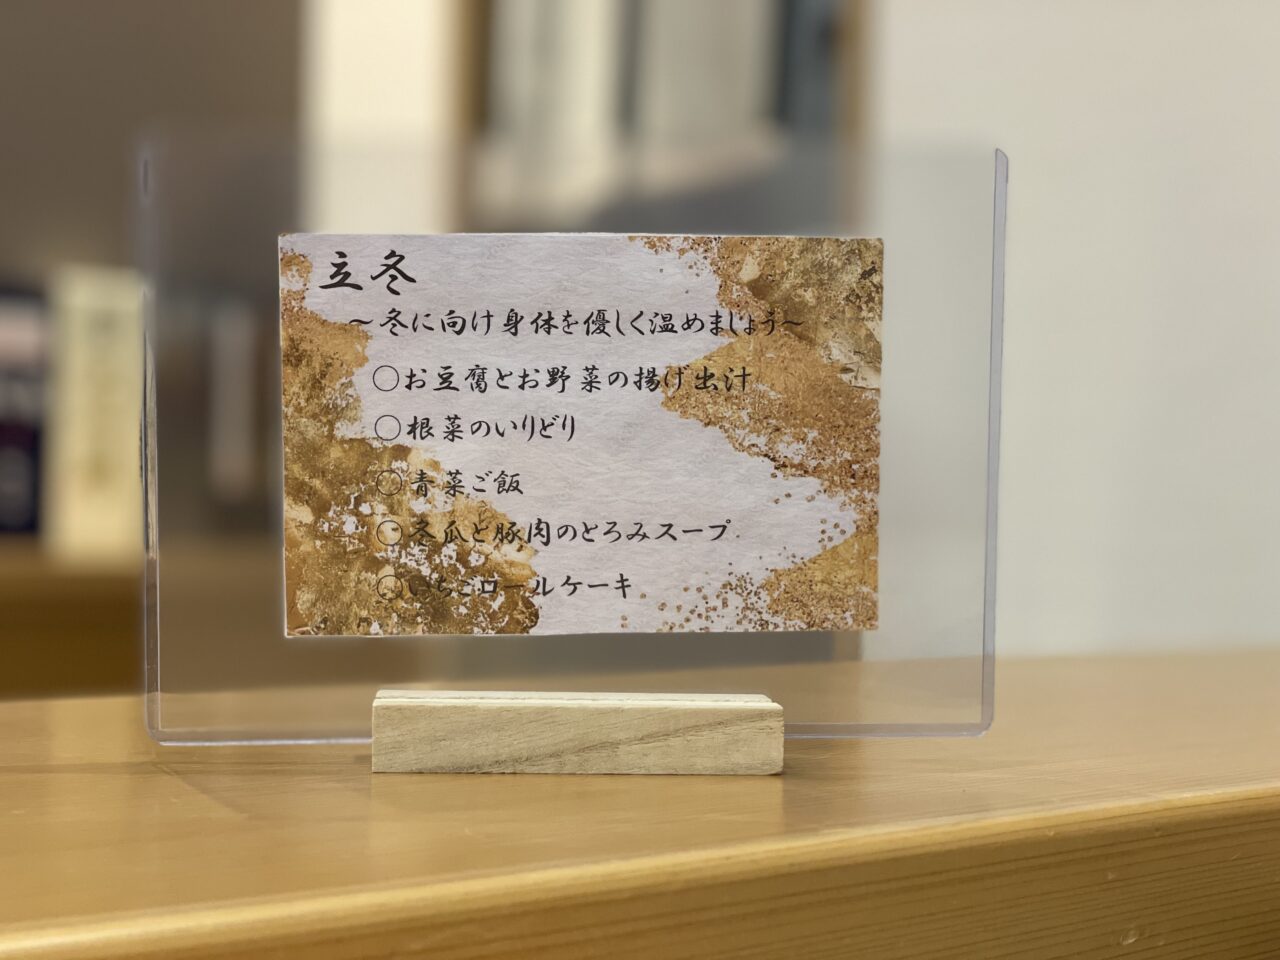 立冬
～冬に向け身体を優しく温めましょう～
○お豆腐とお野菜の揚げ出汁
○根菜のいりどり
○青菜ご飯
○冬瓜と豚肉のとろみスープ
○いちごロールケーキ